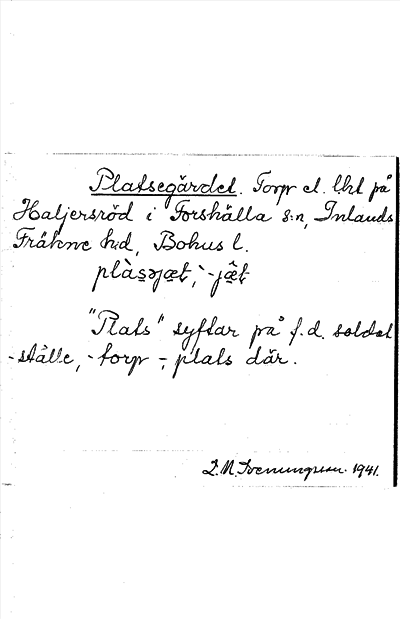 Platsegärdet. Torp el. lht på
Haljersröd i Forshälla s:n, Inlands
Fräkne h:d, Bohus l.
"Plats" syftar på f.d. soldat
-ställe, -torp -, plats där.
1941.